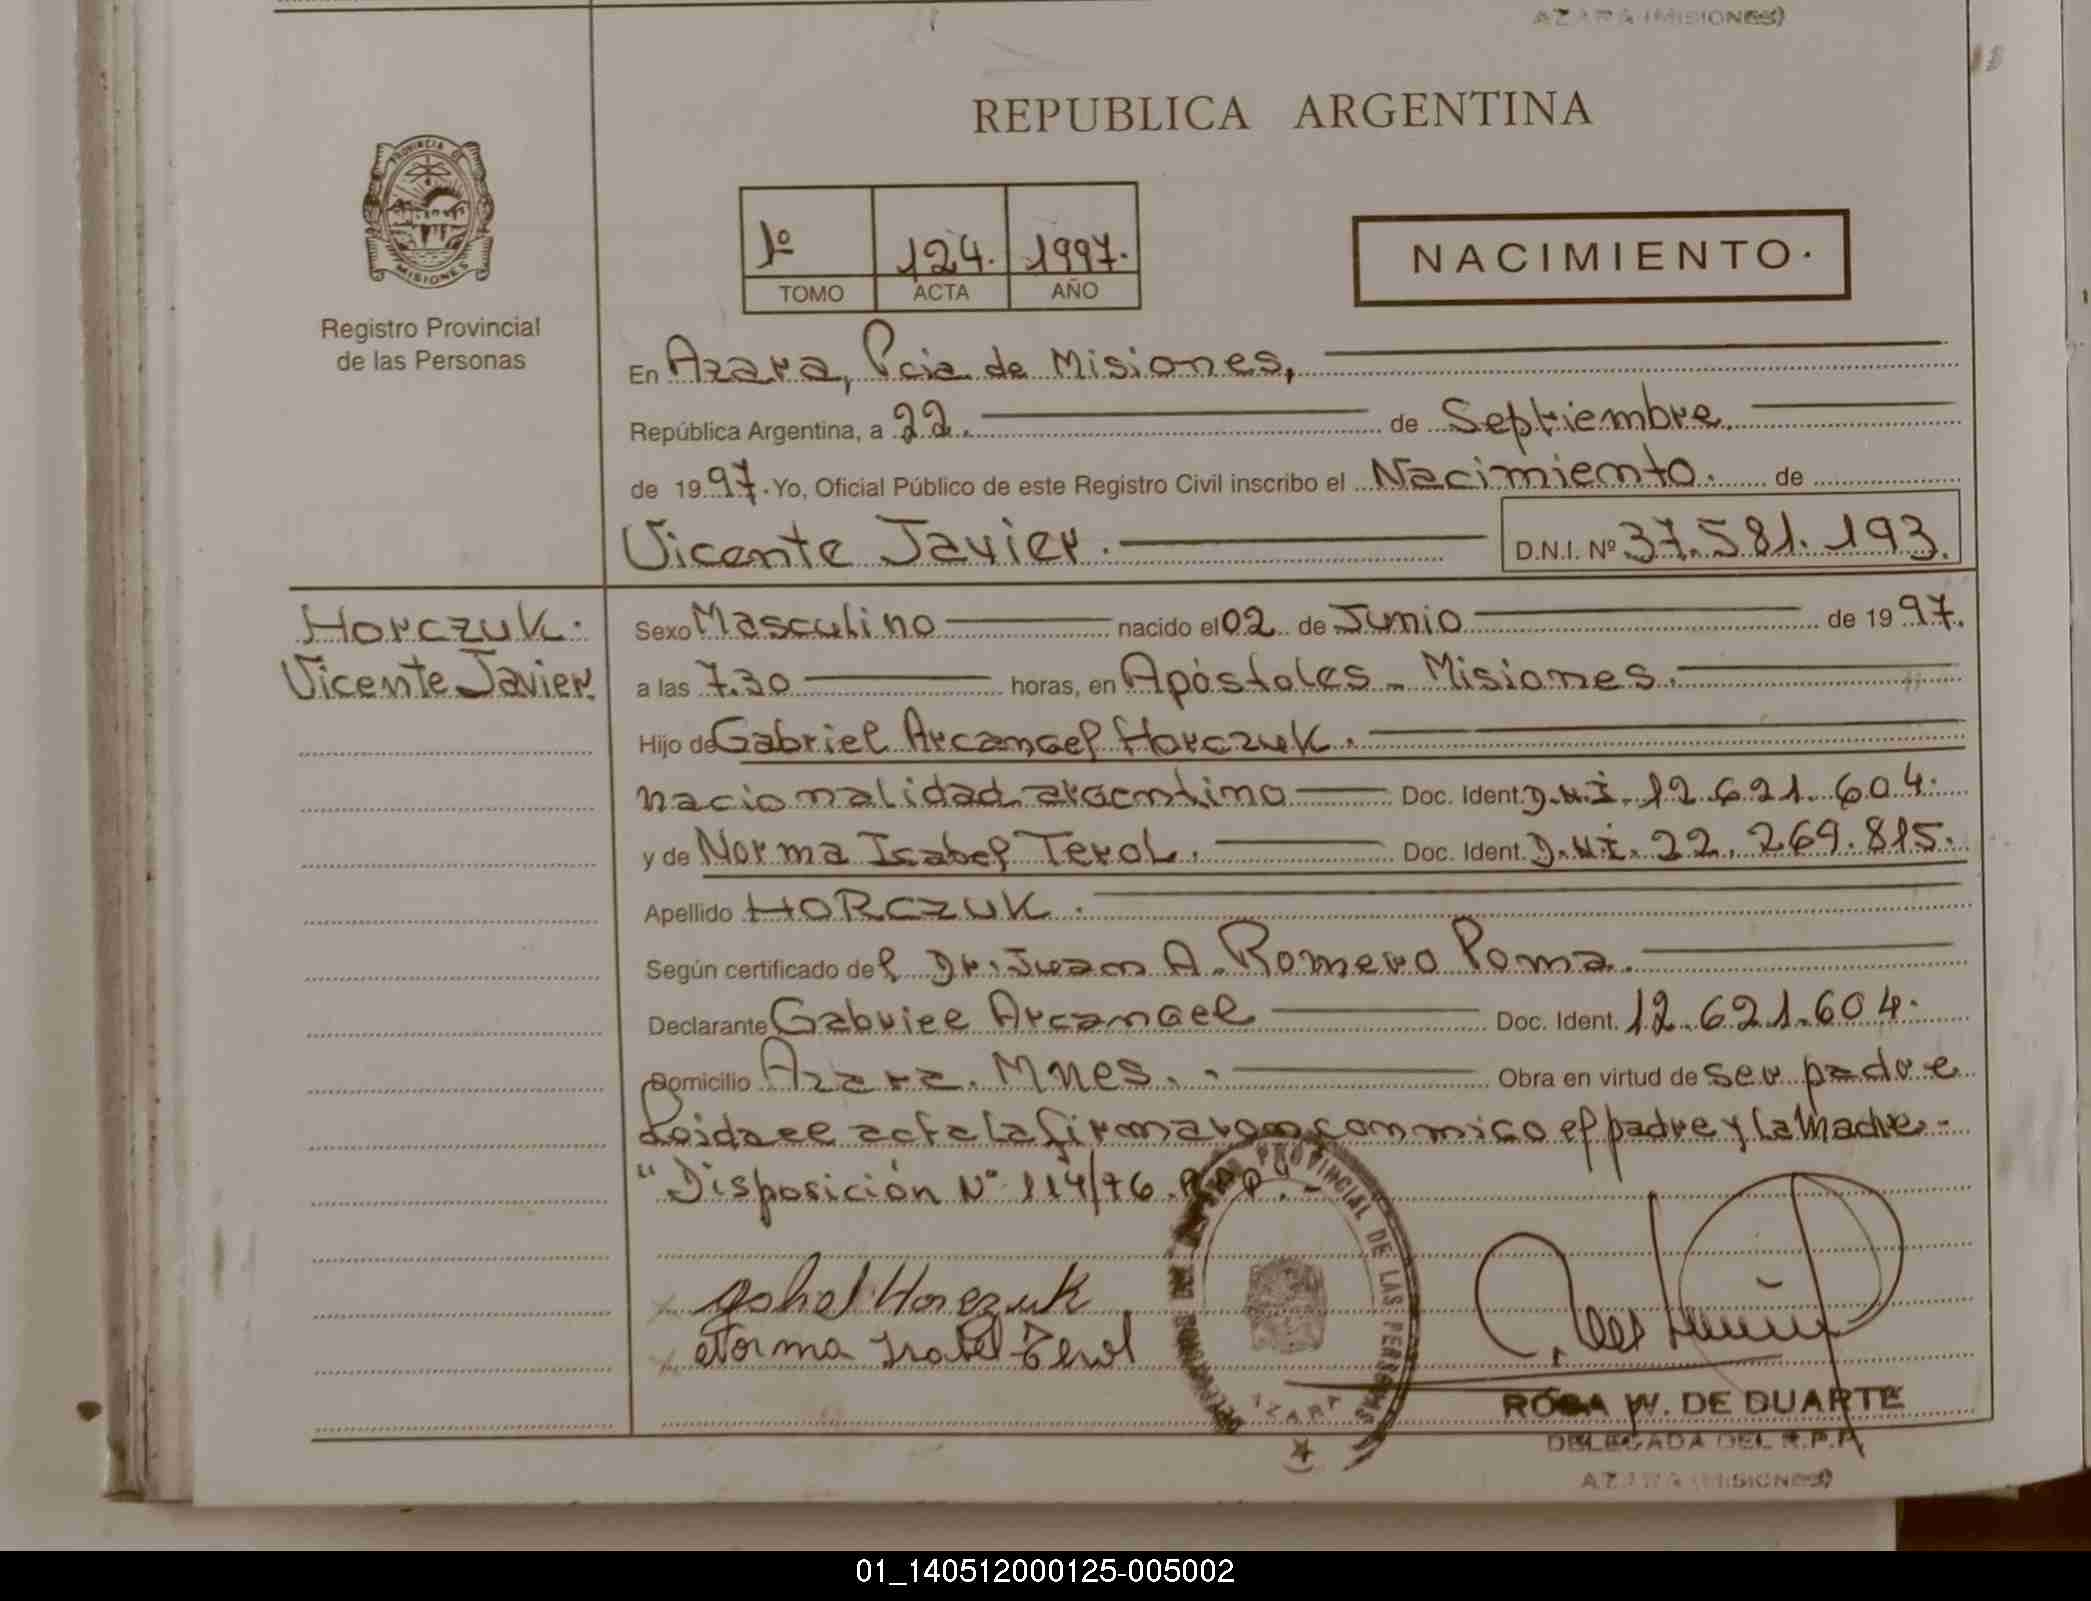 AZARA (MISIONES)
REPUBLICA ARGENTINA
PROVINCIA DE
MISIONES
Registro Provincial
de las Personas
1º 124. 1997.
TOMO ACTA AÑO
NACIMIENTO.
En Azara, Pcia de Misiones,
República Argentina, a 22. de Septiembre.
de 1997. Yo, Oficial Público de este Registro Civil inscribo el Nacimiento. de
Vicente Javier. D.N.I. Nº 37.581.193.
Horczuk.
Vicente Javier.
Sexo Masculino nacido el 02 de Junio de 1997.
a las 7.30 horas, en Apóstoles - Misiones.
Hijo de Gabriel Arcangel Horczuk.
nacionalidad argentino Doc. Ident. D.N.I. 12.621.604.
y de Norma Isabel Terol. Doc. Ident. D.N.I. 22.269.815.
Apellido HORCZUK.
Según certificado del Dr. Juan A. Romero Poma.
Declarante Gabriel Arcangel Doc. Ident. 12.621.604.
Domicilio Azara. Mnes. Obra en virtud de ser padre
Leida el acta la firmaron conmigo el padre y la Madre.-
"Disposición Nº 114/76. R.P.P." -
PROVINCIAL DE LAS PERSONAS
AZARA
gabriel Horczuk
Norma Isabel Terol
ROSA W. DE DUARTE
DELEGADA DEL R.P.P.
AZARA (MISIONES)
01_140512000125-005002